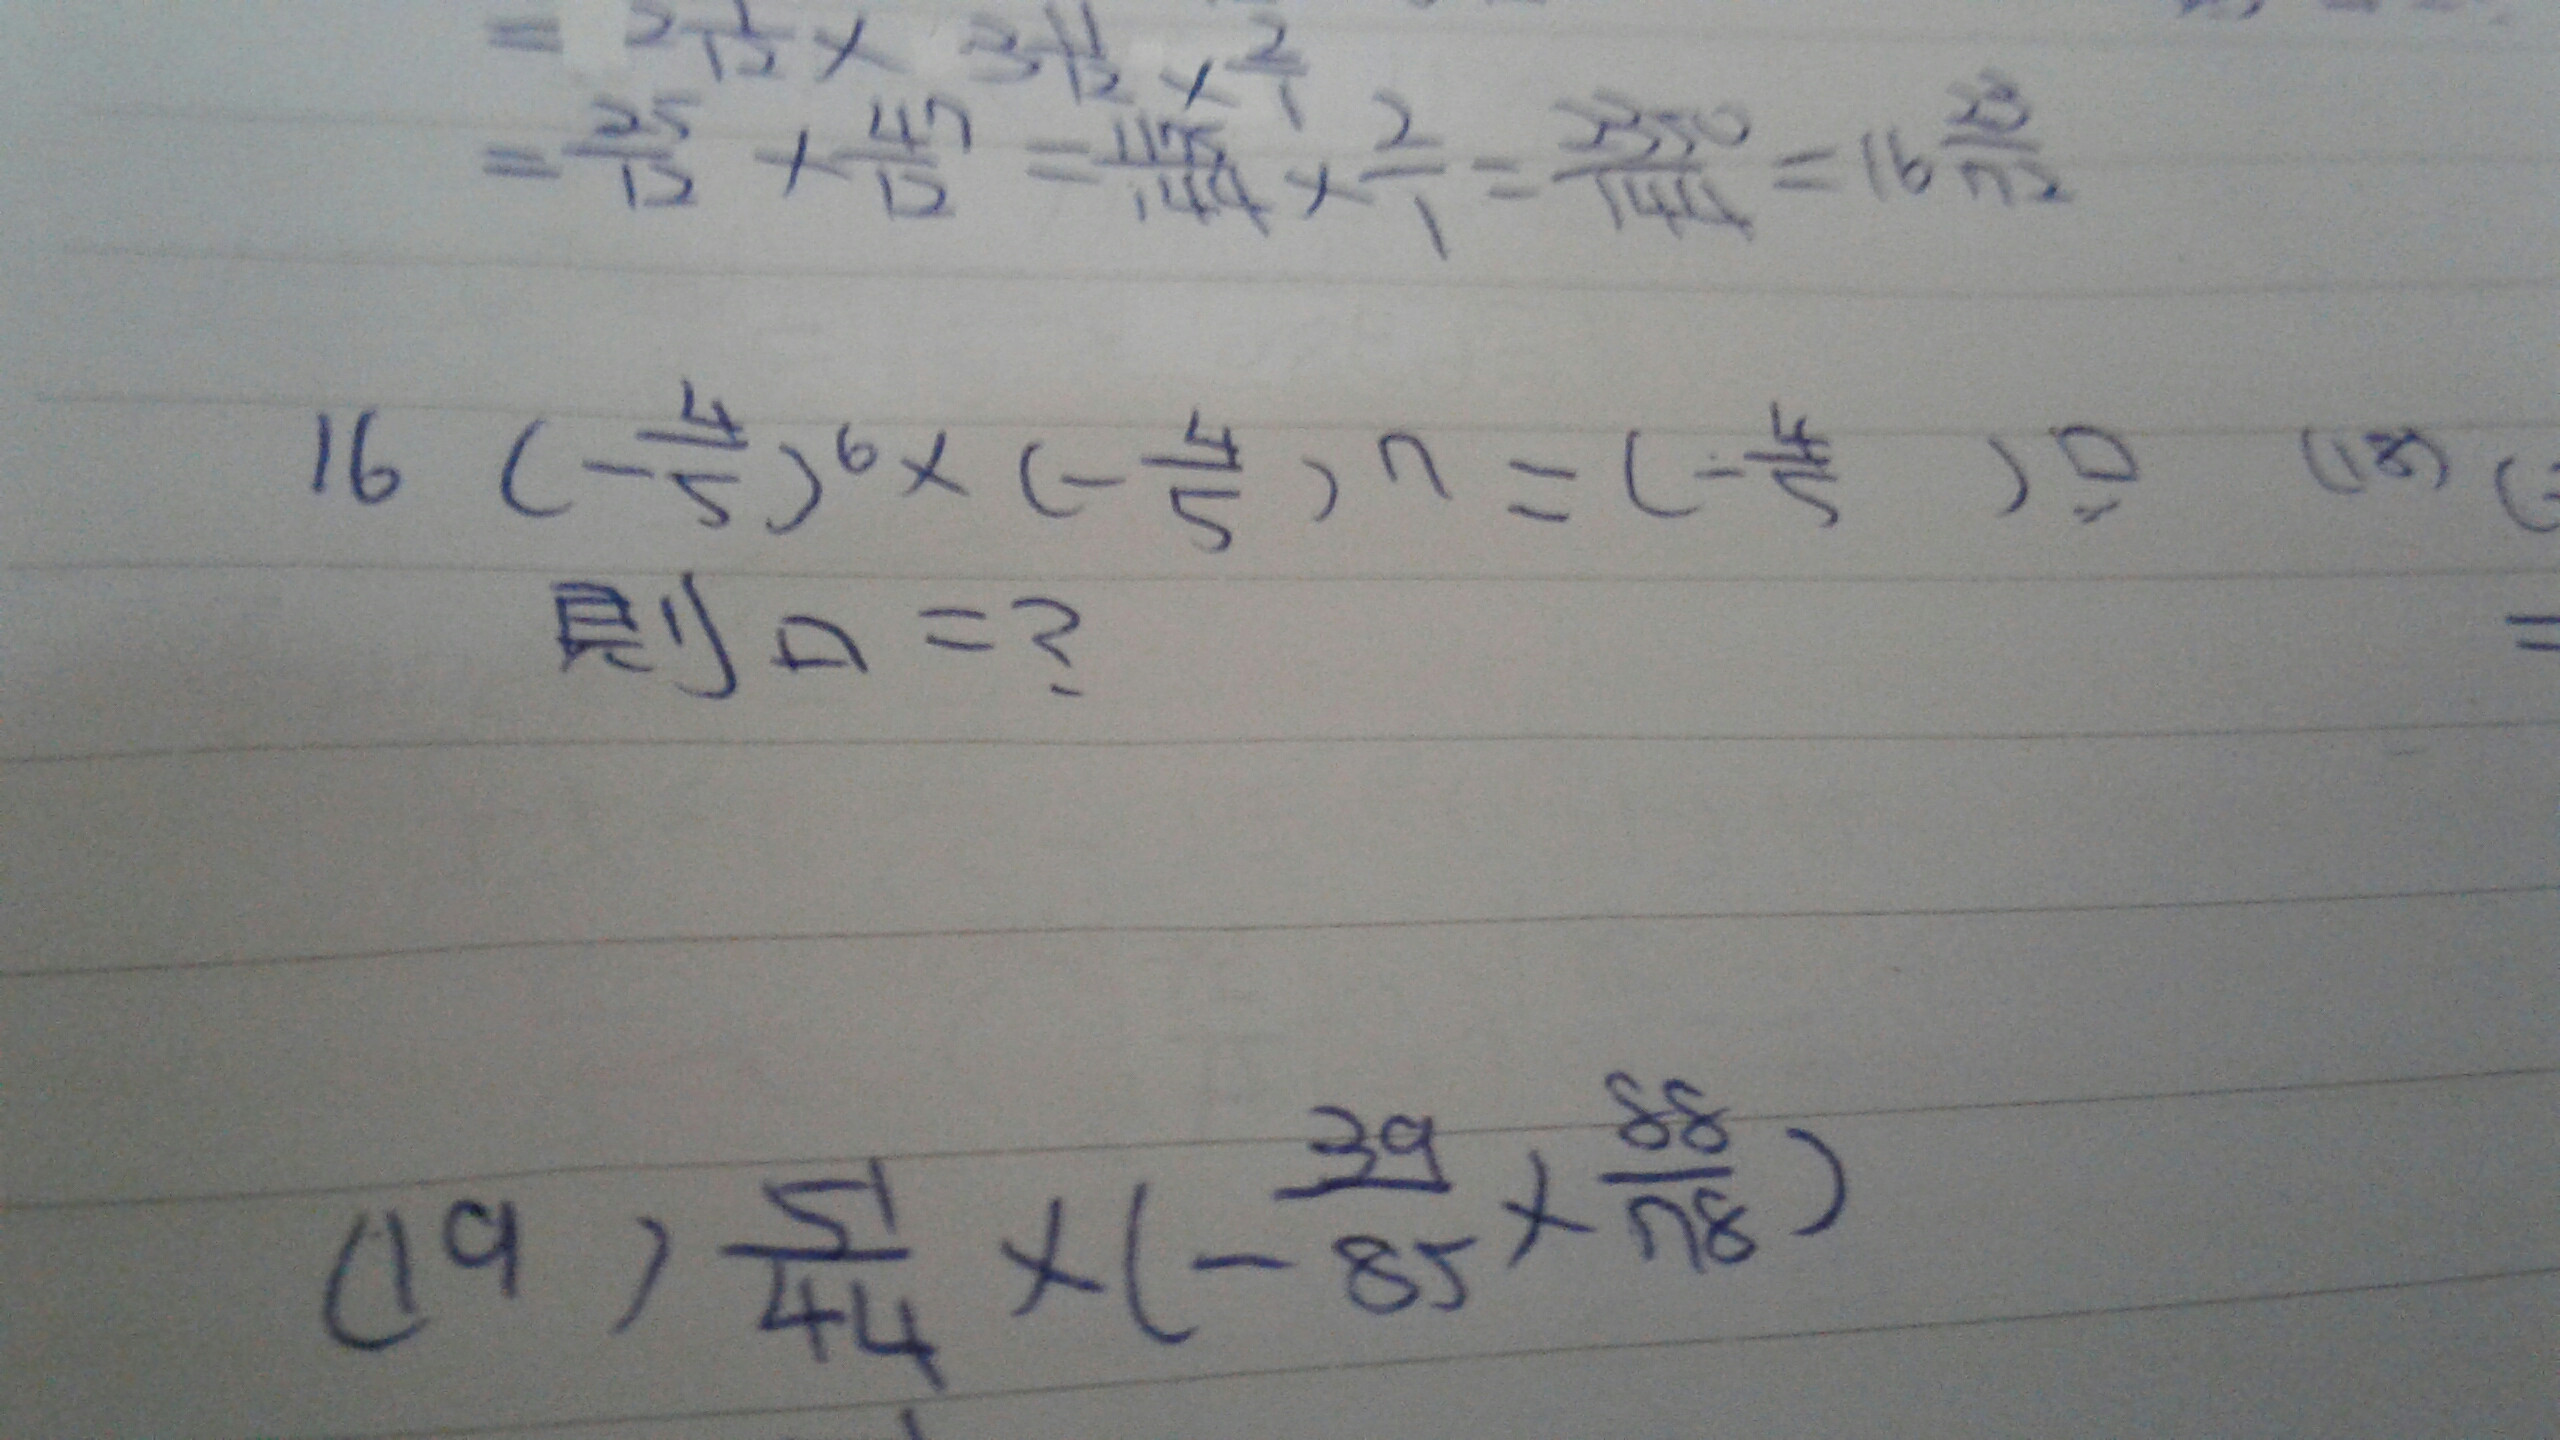 = 2 1/12 × 3 11/12 × 2/1
= 25/12 × 47/12 = 1175/144 × 2/1 = 2350/144 = 16 23/72
16 (-4/5)⁶ × (-4/5)⁷ = (-4/5)□ (18) (-
則□=? =
(19) 51/44 × (-39/85 × 88/78)